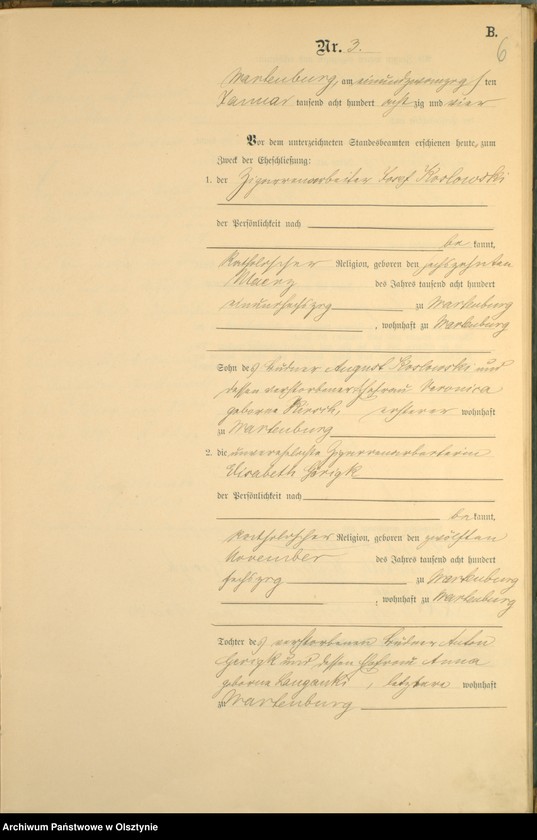 B.
6
Nr. 3.
Wartenburg, am einundzwanzig ten
Januar tausend acht hundert achtzig und vier
Vor dem unterzeichneten Standesbeamten erschienen heute, zum
Zweck der Eheschließung:
1. der Zigarrenarbeiter Josef Koslowski
der Persönlichkeit nach
be kannt,
katholischer Religion, geboren den sechszehnten
Maerz des Jahres tausend acht hundert
einundsechszig zu Wartenburg
, wohnhaft zu Wartenburg
Sohn des August Koslowski und
dessen verstorbener Ehefrau Veronica
geborne Hirsch, ersterer wohnhaft
zu Wartenburg
2. die unverehelichte Zigarrenarbeiterin
Elisabeth Gerigk
der Persönlichkeit nach
be kannt,
katholischer Religion, geboren den zwölften
November des Jahres tausend acht hundert
sechszig zu Wartenburg
, wohnhaft zu Wartenburg
Tochter des verstorbenen Anton
Gerigk und dessen Ehefrau Anna
geborne , letztere wohnhaft
zu Wartenburg
Archiwum Państwowe w Olsztynie